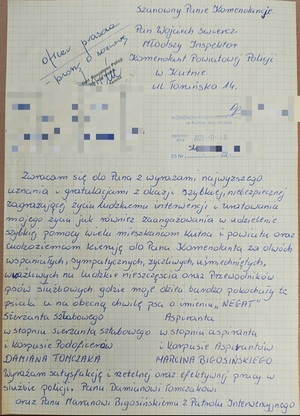 Szanowny Panie Komendancie
Pan Wojciech
Młodszy Inspektor
Komendant Powiatowej Policji
w Kutnie
ul. Toruńska 14.
oficer prasowy
- proszę o rozmowę
Zwracam się do Pana z wyrazami najwyższego
uznania i gratulacjami z okazji szybkiej, niebezpiecznej
zagrażającej życiu ludzkiemu interwencji i uratowania
mojego życia jak również zaangażowania w udzielenie
szybkiej pomocy wielu mieszkańcom Kutna i powiatu oraz
cudzoziemcom kieruję do Pana Komendanta za dwóch
wspaniałych, sympatycznych, życzliwych, uśmiechniętych,
wrażliwych na ludzkie nieszczęścia oraz Przewodników
psów służbowych gdzie moje dzieci bardzo pokochały te
psiaki a na obecną chwilę psa o imieniu „NEGAT"
Sierżanta sztabowego Aspiranta
w stopniu sierżanta sztabowego w stopniu aspiranta
i korpusie Podoficerów i korpusie Aspirantów
DAMIANA TOMCZAKA MARCINA BIGOSIŃSKIEGO
Wyrażam satysfakcję i rzetelnej oraz efektywnej pracy w
służbie policji Panu Damianowi Tomczakowi
oraz Panu Marcinowi Bigosińskiemu z Patrolu Interwencyjnego